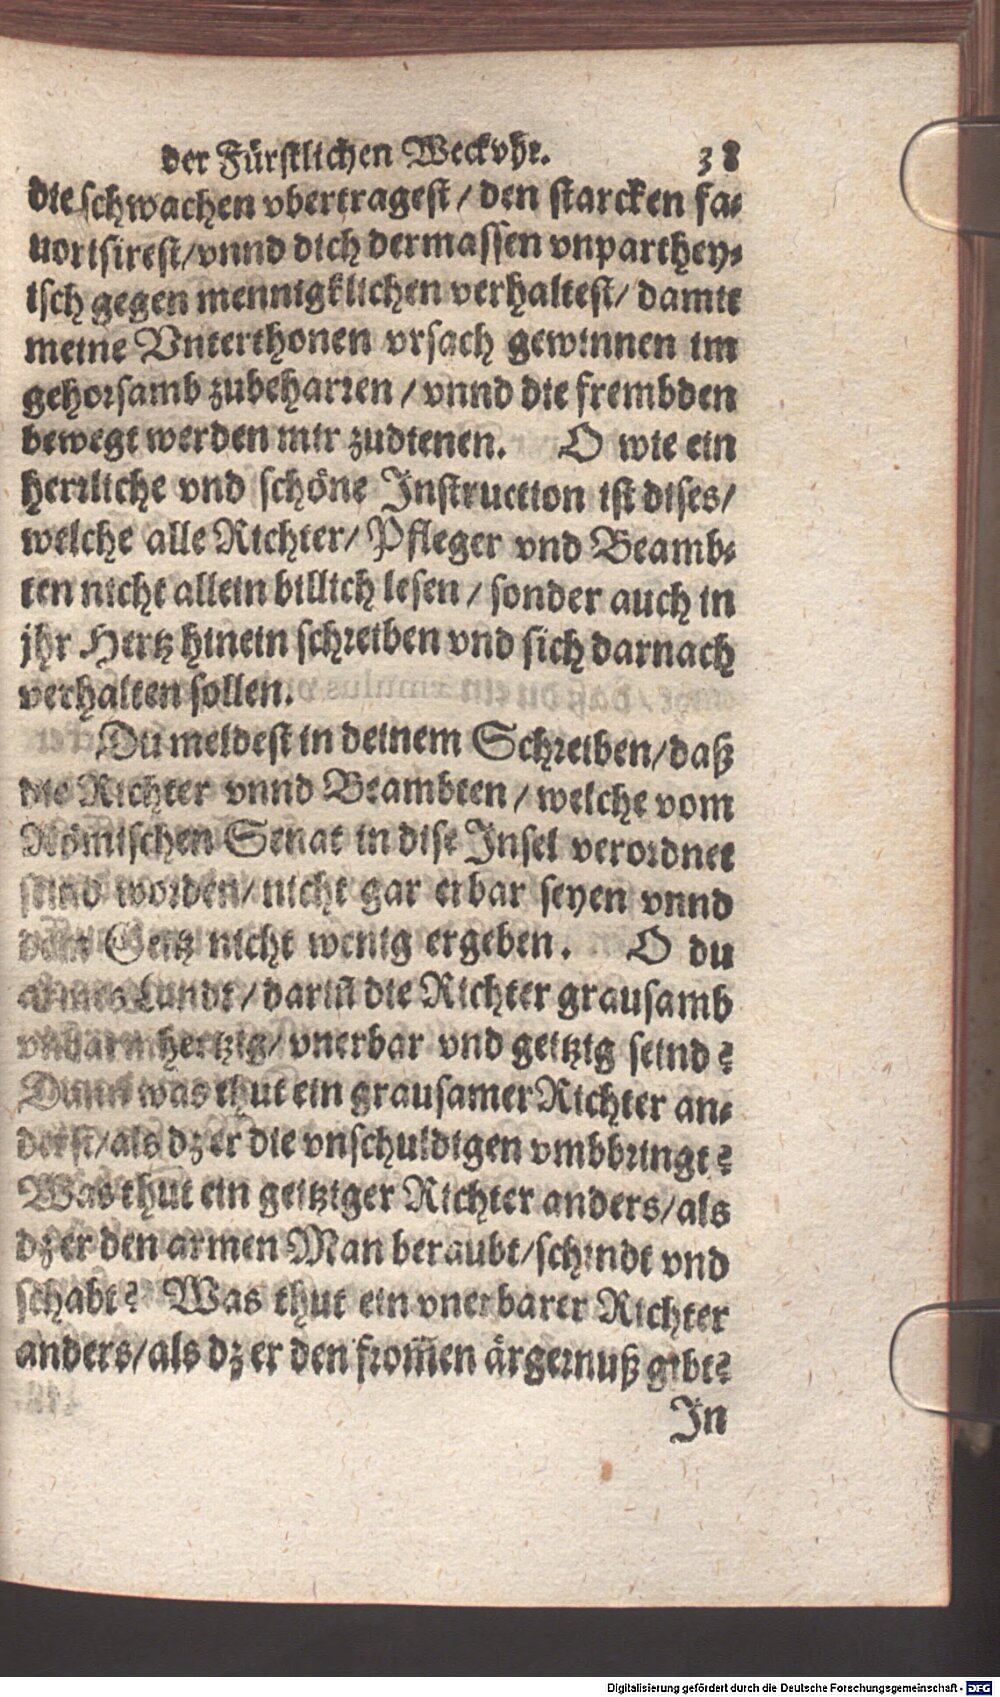 der Fürstlichen Weckvhr. 38
die schwachen vbertragest / den starcken fa-
uorisirest/vnnd dich dermassen vnparthey-
isch gegen mennigklichen verhaltest/ damit
meine Vnterthonen vrsach gewinnen im
gehorsamb zubeharren / vnnd die frembden
bewegt werden mir zudienen. O wie ein
herrliche vnd schöne Instruction ist dises/
welche alle Richter/ Pfleger vnd Beamb-
ten nicht allein billich lesen / sonder auch in
jhr Hertz hinein schreiben vnd sich darnach
verhalten sollen.
Du meldest in deinem Schreiben/daß
die Richter vnnd Beambten / welche vom
Römischen Senat in dise Insel verordnet
seind worden/ nicht gar erbar seyen vnnd
dem Geitz nicht wenig ergeben. O du
armes Landt / dariñ die Richter grausamb
vnbarmhertzig/ vnerbar vnd geitzig seind?
Dann was thut ein grausamer Richter an-
derst/als dz er die vnschuldigen vmbbringt?
Was thut ein geitziger Richter anders/als
dz er den armen Man beraubt/schindt vnd
schabt? Was thut ein vnerbarer Richter
anders/als dz er den from̃en ärgernuß gibt?
In
Digitalisierung gefördert durch die Deutsche Forschungsgemeinschaft - DFG